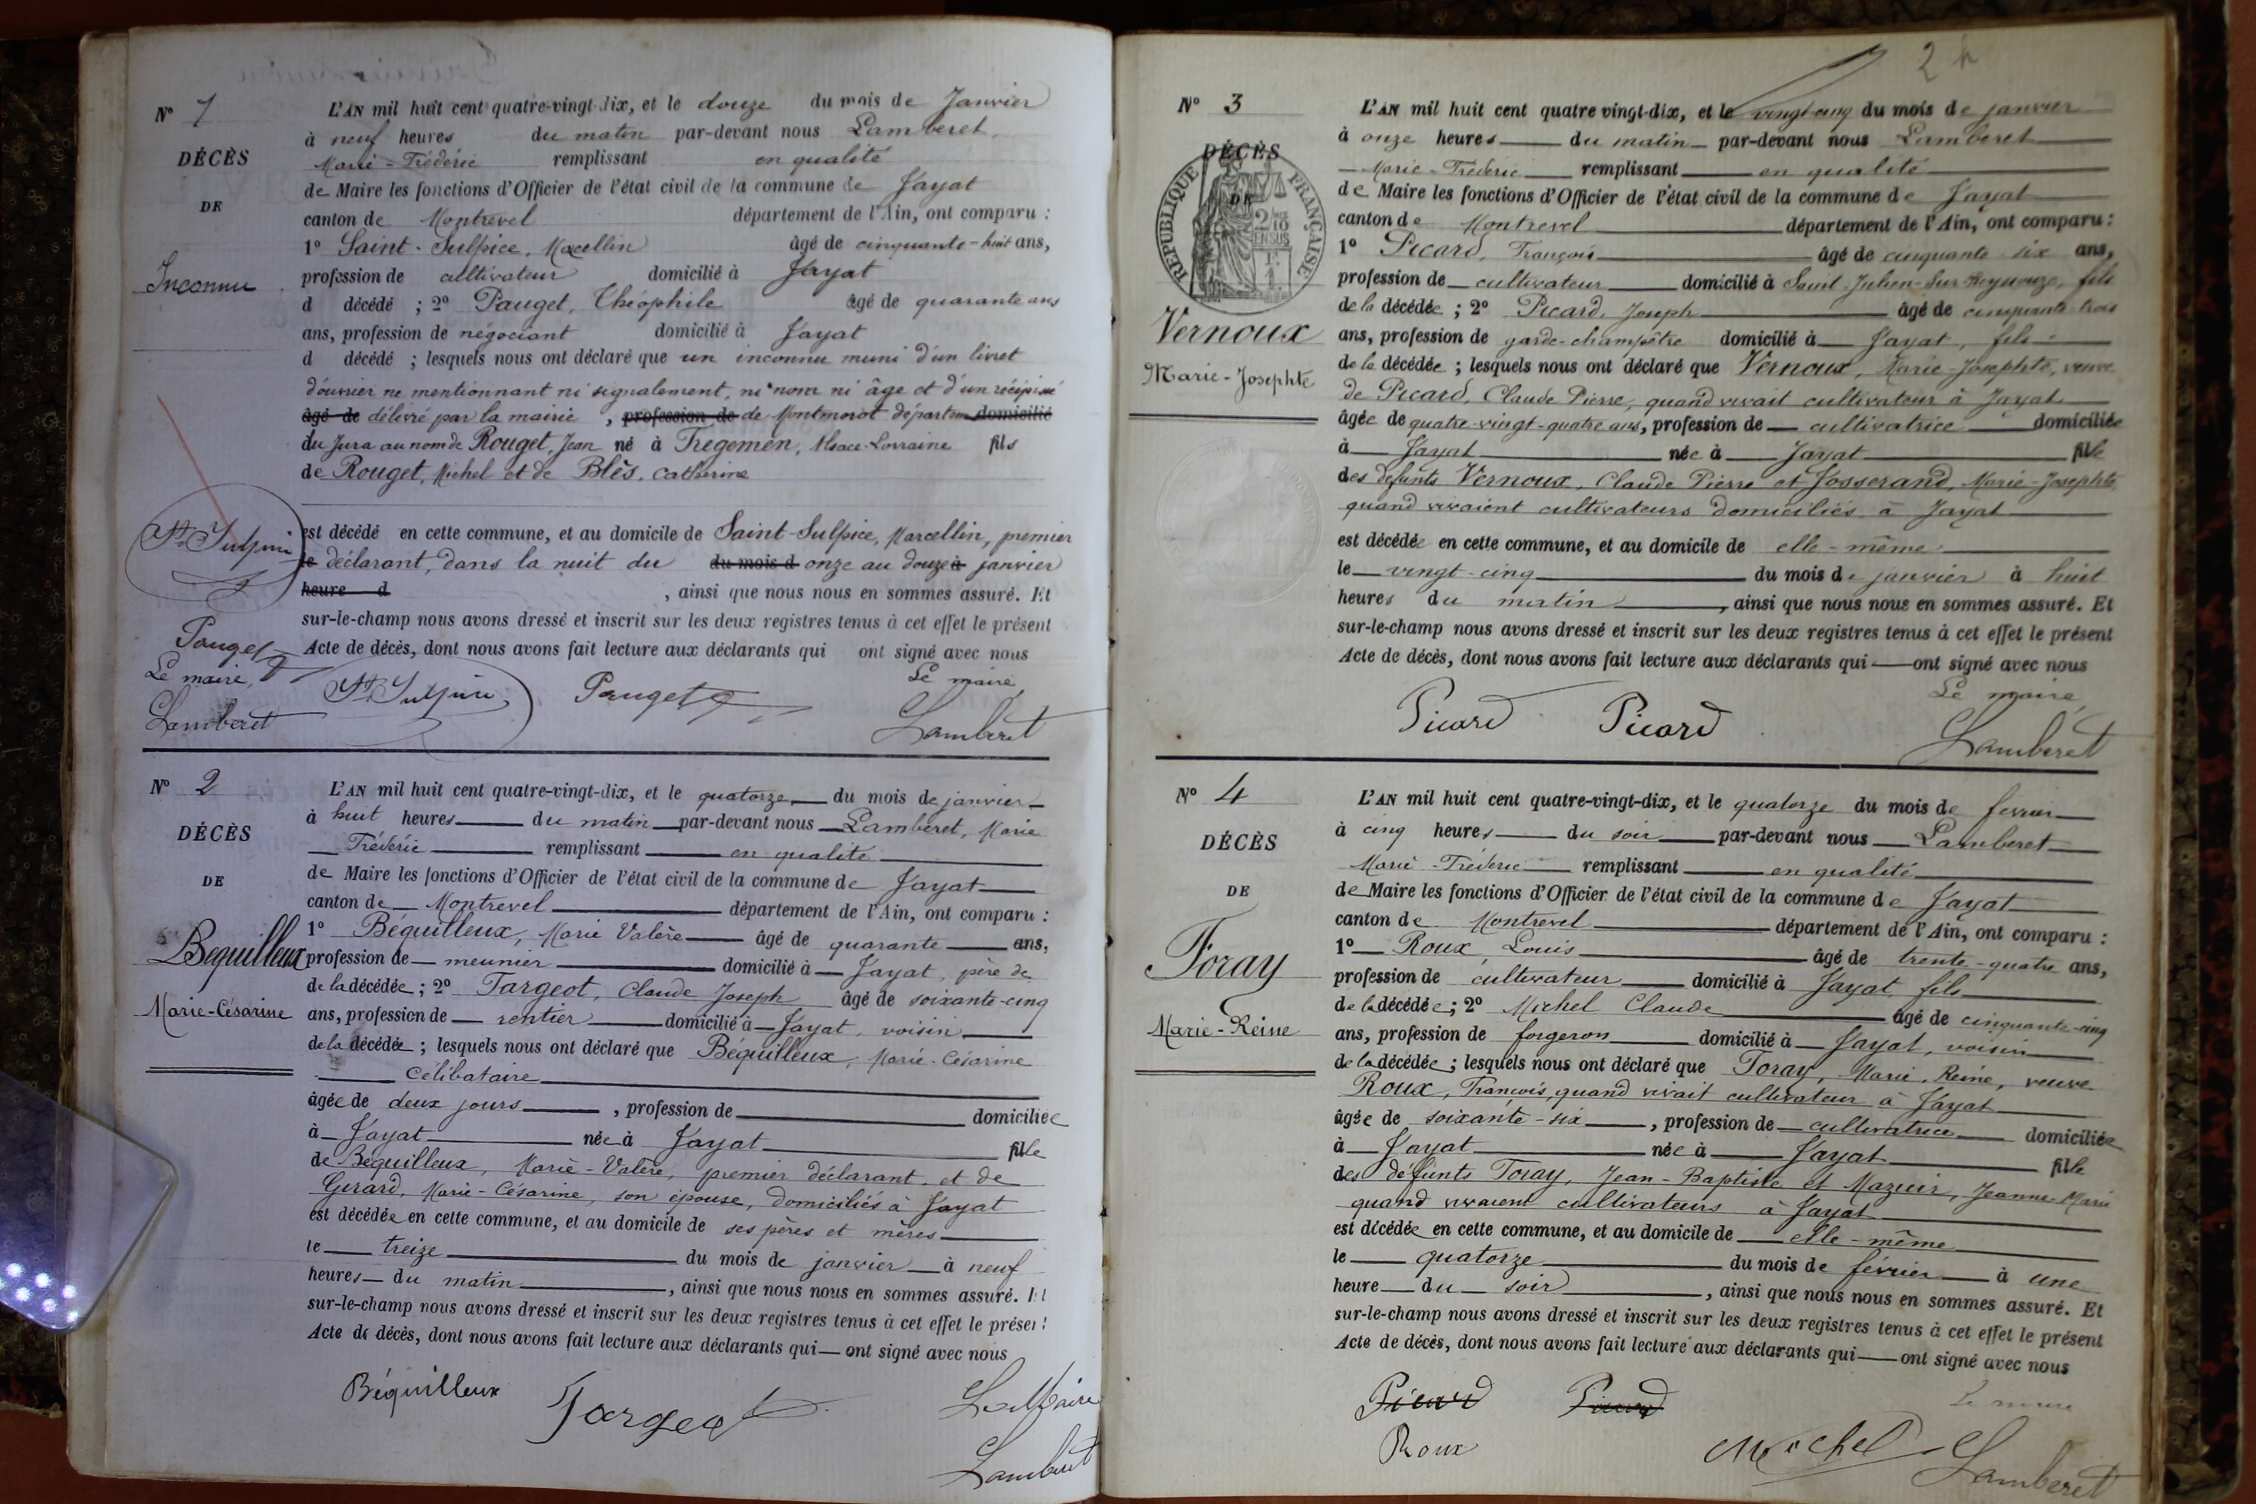 N° 1
DÉCÈS
DE
Inconnu
L'AN mil huit cent quatre-vingt-dix, et le douze du mois de Janvier
à neuf heures du matin par-devant nous Lamberet
Marie-Fréderic remplissant en qualité
de Maire les fonctions d'Officier de l'état civil de la commune de Jayat
canton de Montrevel département de l'Ain, ont comparu :
1° Saint-Sulpice, Macellin âgé de cinquante-huit ans,
profession de cultivateur domicilié à Jayat
d décédé ; 2° Pauget, Théophile âgé de quarante ans
ans, profession de négociant domicilié à Jayat
d décédé ; lesquels nous ont déclaré que un inconnu muni d'un livret
d'ouvrier ne mentionnant ni signalement, ni nom ni âge et d'un récépissé
âgé de délivré par la mairie , profession de de Montmorot départem domicilié
du Jura au nom de Rouget, Jean né à Tregemen, Alsace-Lorraine fils
de Rouget, Michel et de Blès, Catherine
est décédé en cette commune, et au domicile de Saint-Sulpice, Marcellin, premier
le déclarant, dans la nuit du du mois d onze au douze à janvier
heure d , ainsi que nous nous en sommes assuré. Et
sur-le-champ nous avons dressé et inscrit sur les deux registres tenus à cet effet le présent
Acte de décès, dont nous avons fait lecture aux déclarants qui ont signé avec nous
St Sulpice
Pauget
Le maire,
Lamberet
St Sulpice Pauget Le maire
Lamberet
N° 2
DÉCÈS
DE
Bequilleux
Marie-Césarine
L'AN mil huit cent quatre-vingt-dix, et le quatorze du mois de janvier
à huit heures du matin par-devant nous Lamberet, Marie
Fréderic remplissant en qualité
de Maire les fonctions d'Officier de l'état civil de la commune de Jayat
canton de Montrevel département de l'Ain, ont comparu :
1° Béquilleux, Marie Valère âgé de quarante ans,
profession de meunier domicilié à Jayat, père de
de la décédée ; 2° Targeot, Claude Joseph âgé de soixante-cinq
ans, profession de rentier domicilié à Jayat, voisin
de la décédée ; lesquels nous ont déclaré que Béquilleux, Marie-Césarine
célibataire
âgée de deux jours , profession de domiciliée
à Jayat née à Jayat fille
de Bequilleux, Marie-Valère, premier déclarant et de
Gerard, Marie-Césarine, son épouse, domiciliés à Jayat
est décédée en cette commune, et au domicile de ses pères et mères
le treize du mois de janvier à neuf
heures du matin , ainsi que nous nous en sommes assuré. Et
sur-le-champ nous avons dressé et inscrit sur les deux registres tenus à cet effet le présent
Acte de décès, dont nous avons fait lecture aux déclarants qui ont signé avec nous
Béquilleux Targeot Le Maire
Lamberet
2
N° 3
DÉCÈS
DE
RÉPUBLIQUE FRANÇAISE
Vernoux
Marie-Josephte
L'AN mil huit cent quatre vingt-dix, et le vingt-cinq du mois de janvier
à onze heures du matin par-devant nous Lamberet
Marie-Fréderic remplissant en qualité
de Maire les fonctions d'Officier de l'état civil de la commune de Jayat
canton de Montrevel département de l'Ain, ont comparu :
1° Picard, François âgé de cinquante six ans,
profession de cultivateur domicilié à Saint-Julien-sur-Reyssouze, fils
de la décédée ; 2° Picard, Joseph âgé de cinquante-trois
ans, profession de garde-champêtre domicilié à Jayat, fils
de la décédée ; lesquels nous ont déclaré que Vernoux, Marie-Josephte, veuve
de Picard, Claude Pierre, quand vivait cultivateur à Jayat
âgée de quatre-vingt-quatre ans, profession de cultivatrice domiciliée
à Jayat née à Jayat fille
des défunts Vernoux, Claude Pierre et Josserand, Marie-Josephte
quand vivaient cultivateurs domiciliés à Jayat
est décédée en cette commune, et au domicile de elle-même
le vingt-cinq du mois de janvier à huit
heures du matin , ainsi que nous nous en sommes assuré. Et
sur-le-champ nous avons dressé et inscrit sur les deux registres tenus à cet effet le présent
Acte de décès, dont nous avons fait lecture aux déclarants qui ont signé avec nous
Picard Picard Le maire
Lamberet
N° 4
DÉCÈS
DE
Foray
Marie-Reine
L'AN mil huit cent quatre-vingt-dix, et le quatorze du mois de fevrier
à cinq heures du soir par-devant nous Lamberet
Marie-Fréderic remplissant en qualité
de Maire les fonctions d'Officier de l'état civil de la commune de Jayat
canton de Montrevel département de l'Ain, ont comparu :
1° Roux, Louis âgé de trente-quatre ans,
profession de cultivateur domicilié à Jayat, fils
de la décédée ; 2° Michel Claude âgé de cinquante-cinq
ans, profession de forgeron domicilié à Jayat, voisin
de la décédée ; lesquels nous ont déclaré que Foray, Marie, Reine, veuve
Roux, François, quand vivait cultivateur à Jayat
âgée de soixante-six , profession de cultivatrice domiciliée
à Jayat née à Jayat fille
des défunts Foray, Jean-Baptiste et Mazuir, Jeanne-Marie
quand vivaient cultivateurs à Jayat
est décédée en cette commune, et au domicile de elle-même
le quatorze du mois de février à une
heure du soir , ainsi que nous nous en sommes assuré. Et
sur-le-champ nous avons dressé et inscrit sur les deux registres tenus à cet effet le présent
Acte de décès, dont nous avons fait lecture aux déclarants qui ont signé avec nous
Picard Picard Le maire
Roux Michel Lamberet